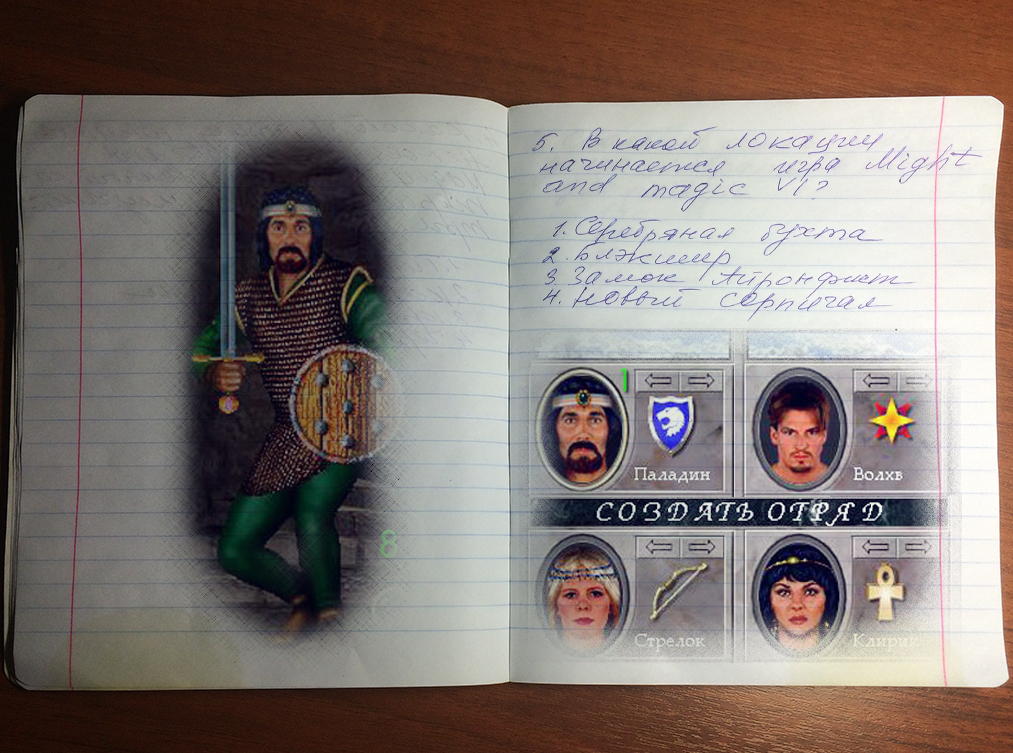 5. В какой локации
начинается игра Might
and magic VI?
1. Серебряная бухта
2. Блэкшир
3. Замок Айронфист
4. Новый Сорпигал
1
Паладин
Волхв
СОЗДАТЬ ОТРЯД
8
Стрелок
Клирик